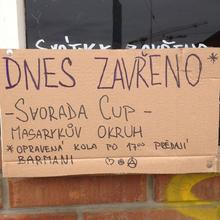 DNES ZAVŘENO*
-SVORADA CUP-
MASARYKŮV OKRUH
*OPRAVENÁ KOLA PO 17⁰⁰ PŘEDAJÍ
BARMANI